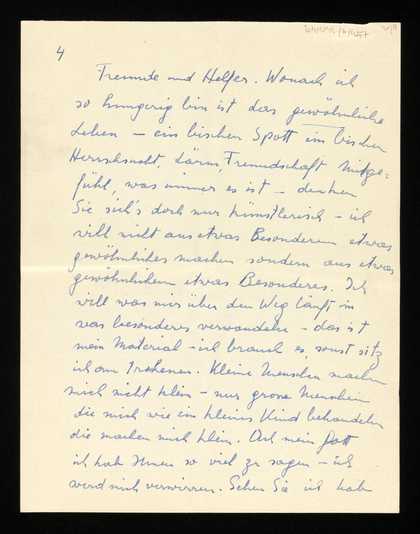 4
Freunde und Helfer. Wonach ich
so hungerig bin ist das gewöhnliche
Leben — ein bischen Spott im bischen
Herrschsucht, Lärm, Freundschaft Mitge-
fühl, was immer es ist — denken
Sie sich's doch nur künstlerisch — ich
will nicht aus etwas Besonderem etwas
gewöhnliches machen sondern aus etwas
gewöhnlichem etwas Besonderes. Ich
will was mir über den Weg läuft in
was besonderes verwandeln — das ist
mein Material — ich brauch es, sonst sitz
ich am Trokenen. Kleine Menschen machen
mich nicht klein — nur grosse Menschen
die mich wie ein kleines Kind behandeln
die machen mich klein. Ach mein Gott
ich hab Ihnen so viel zu sagen — ich
werd mich verwirren. Sehen Sie ich hab